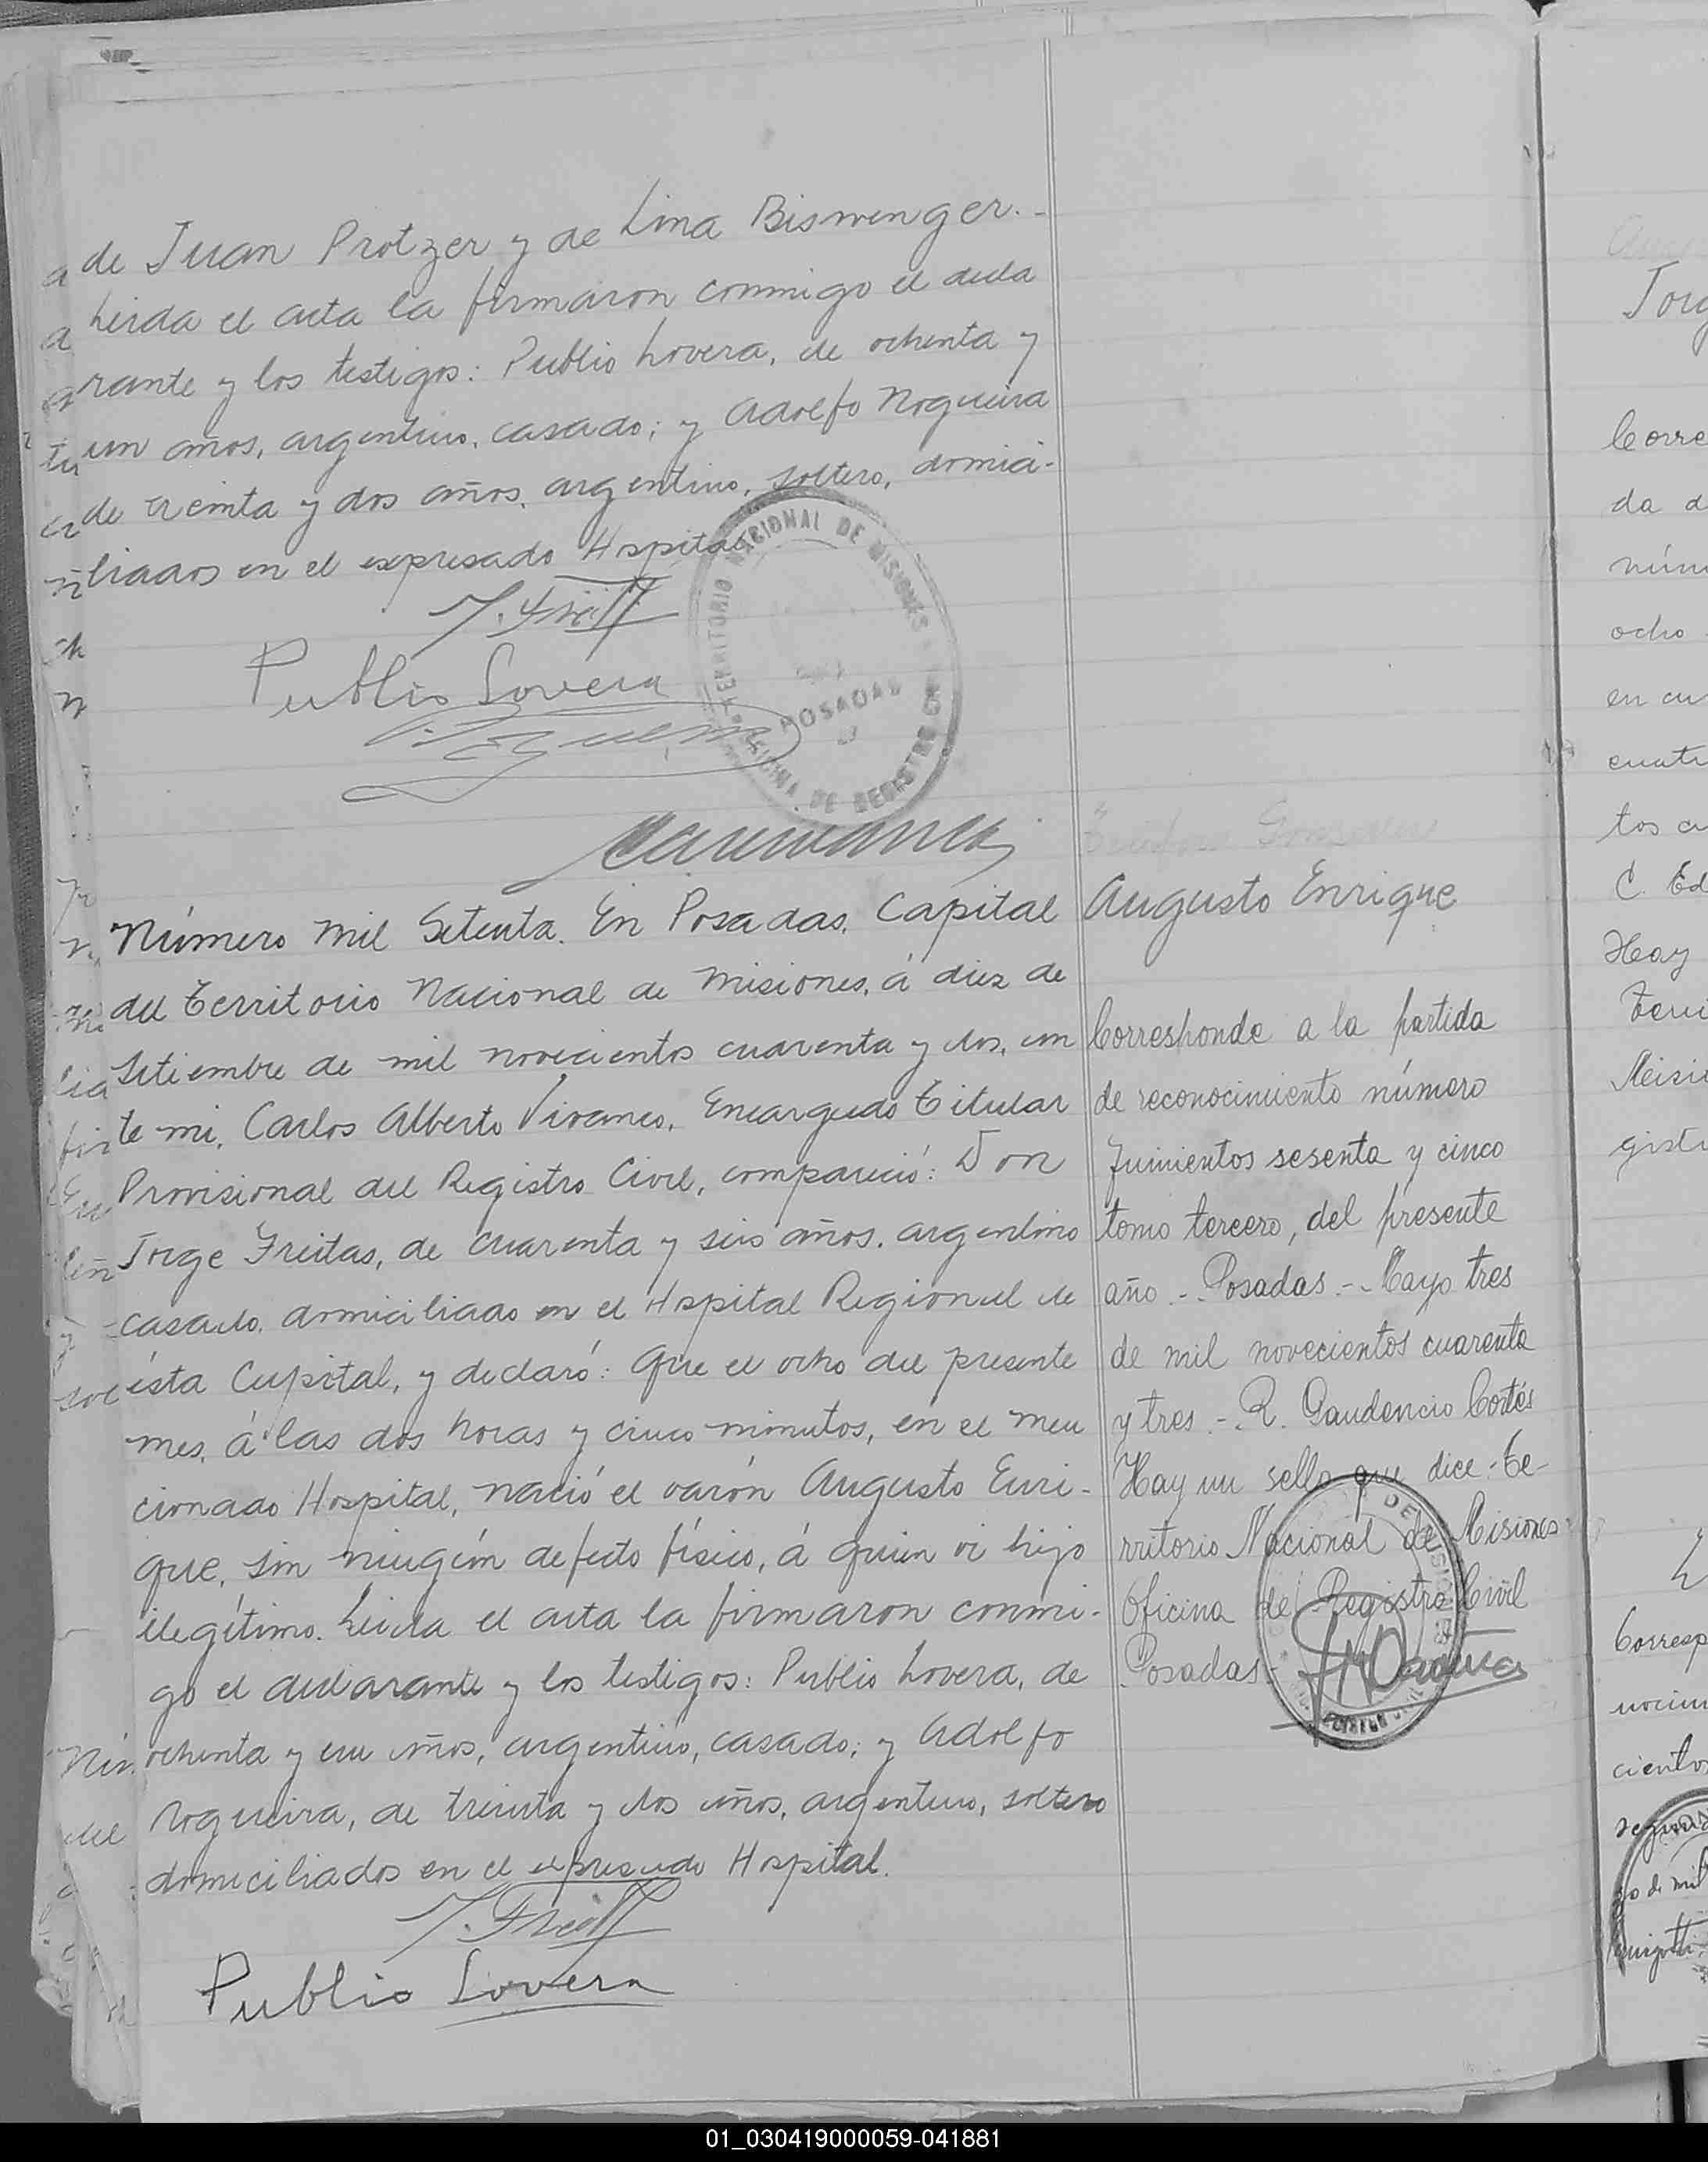 de Juan Protzer y de Lina Biswenger.-
Leida el acta la firmaron conmigo el decla
rante y los testigos: Publio Lovera, de ochenta y
un años, argentino, casado; y Adolfo Nogueira
de treinta y dos años, argentino, soltero, domici-
liados en el expresado Hospital
J. Freitas
Publio Lovera
TERRITORIO NACIONAL DE MISIONES
POSADAS
OFICINA DE REGISTRO CIVIL
Número mil Setenta. En Posadas, Capital
del Territorio Nacional de Misiones, á diez de
Setiembre de mil novecientos cuarenta y dos, an
te mi, Carlos Alberto Vivanco, Encargado Titular
Provisional del Registro Civil, compareció: Don
Jorge Freitas, de cuarenta y seis años, argentino
casado, domiciliado en el Hospital Regional de
ésta Capital, y declaró: Que el ocho del presente
mes, á las dos horas y cinco minutos, en el men
cionado Hospital, nació el varón Augusto Enri-
que, sin ningún defecto físico, á quien vi hijo
ilegítimo. Leida el acta la firmaron conmi-
go el declarante y los testigos: Publio Lovera, de
ochenta y un años, argentino, casado; y Adolfo
Nogueira, de treinta y dos años, argentino, soltero
domiciliados en el expresado Hospital.
J. Freitas
Publio Lovera
Augusto Enrique
Corresponde a la partida
de reconocimiento número
quinientos sesenta y cinco
tomo tercero, del presente
año.- Posadas.- Mayo tres
de mil novecientos cuarenta
y tres.- R. Gaudencio Cortés
Hay un sello que dice: Te-
rritorio Nacional de Misiones
Oficina de Registro Civil
Posadas-
Corre
da d
núm
ocho
en cu
cuatr
tos
C. Ed
Hay
Misi
gistr
Corresp
nocim
ciento
01_030419000059-041881